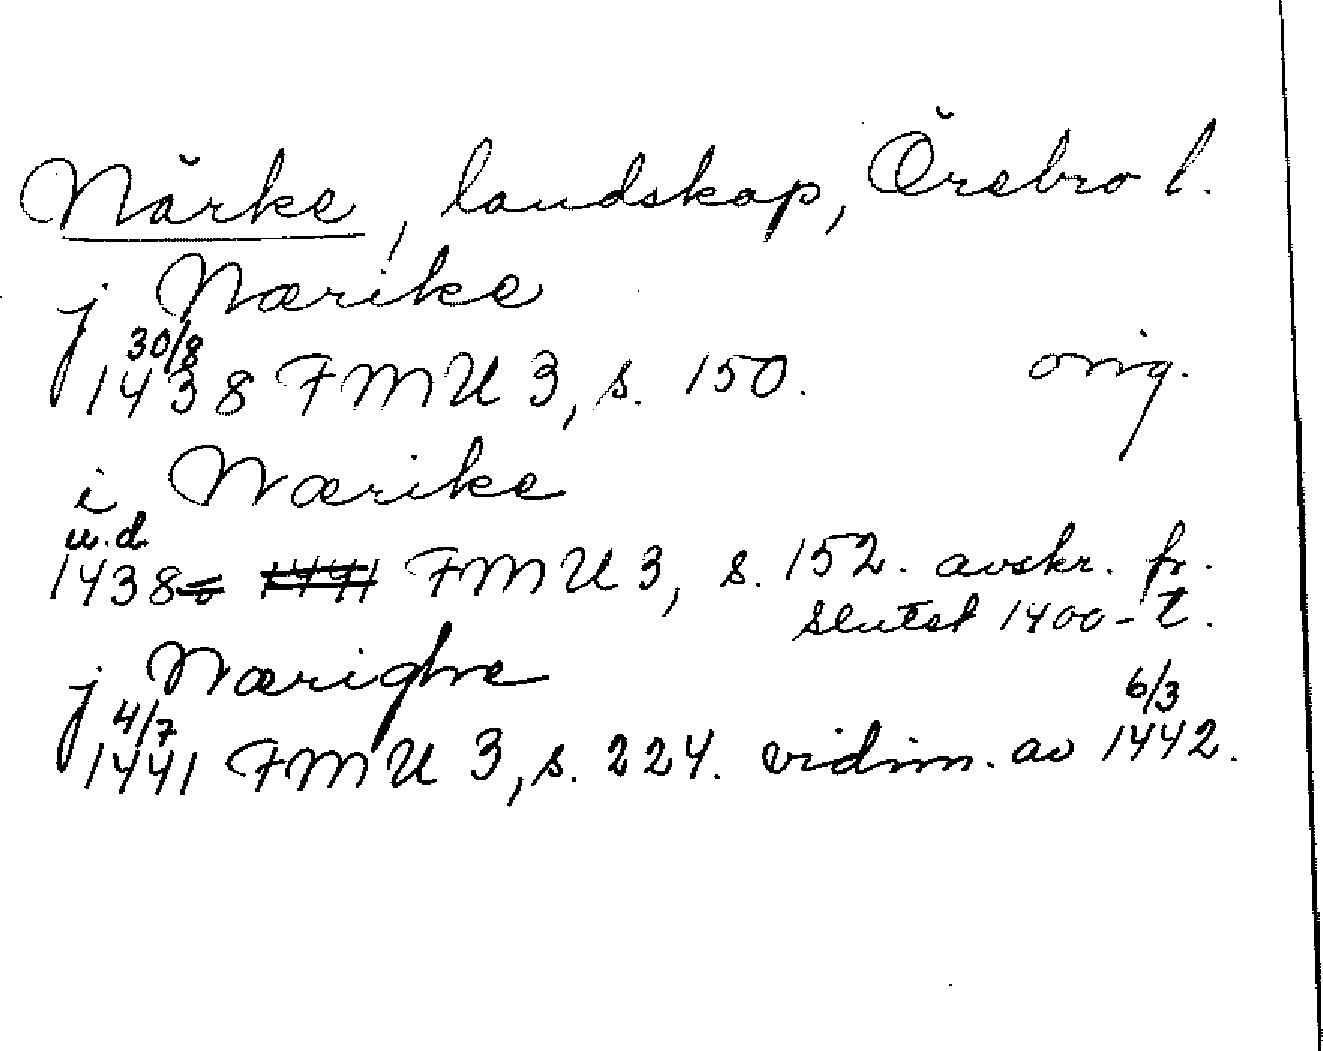 Närke, landskap, Örebro l.
j Nærike
30/8
1438 FMU 3, s. 150. orig.
i Nærike
u.d.
1438 1441 FMU 3, s. 152. avskr. fr.
slutet 1400-t.
j Nærighe
4/7 6/3
1441 FMU 3, s. 224. vidim. av 1442.